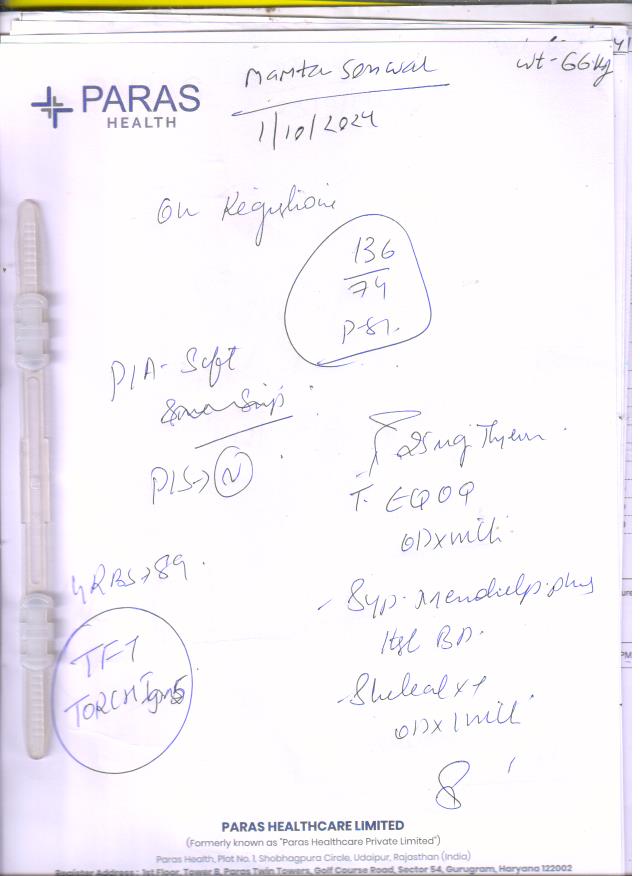 PARAS
HEALTH
Mamta Sonwal
wt-66kg
1/10/2024
On
136
74
P-81.
P/A- Soft
P/S→ N
25mg
T. EQOQ
OD x
GRBS→89.
TFT
TORCH Igm
- Syp. Menohelp plus
BD.
- Shelcal XT
OD x 1
PARAS HEALTHCARE LIMITED
(Formerly known as "Paras Healthcare Private Limited")
Paras Health, Plot No. 1, Shobhagpura Circle, Udaipur, Rajasthan (India)
Register Address : 1st Floor, Tower B, Paras Twin Towers, Golf Course Road, Sector 54, Gurugram, Haryana 122002